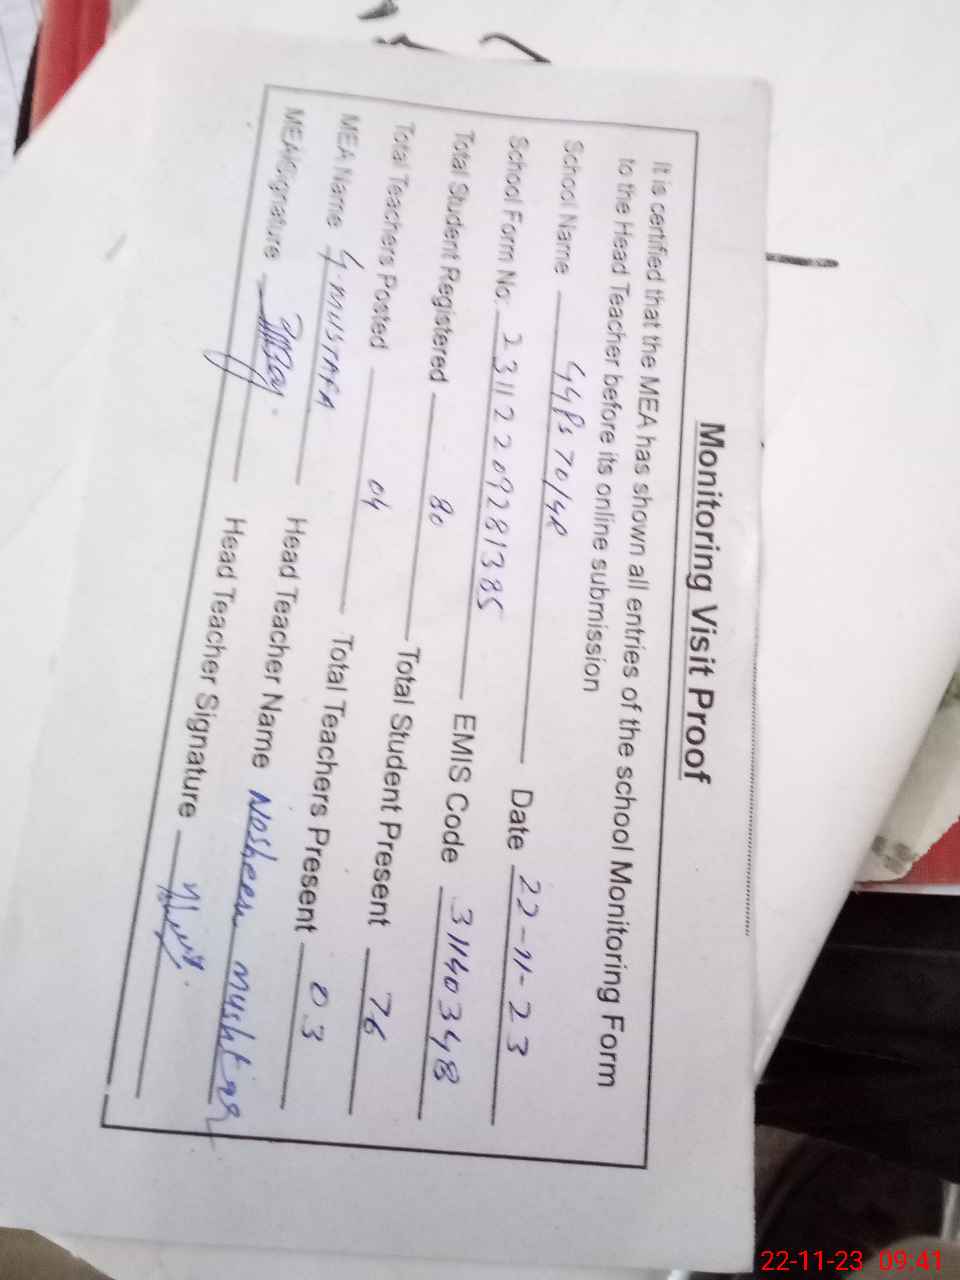 Monitoring Visit Proof
It is certified that the MEA has shown all entries of the school Monitoring Form
to the Head Teacher before its online submission
School Name GGPS 70/4R Date 22-11-23
School Form No: 23112209281385 EMIS Code 31140348
Total Student Registered 80 Total Student Present 76
Total Teachers Posted 04 Total Teachers Present 03
MEA Name G. MUSTAFA Head Teacher Name Nosheen mushtaq
MEA Signature Head Teacher Signature
22-11-23 09:41